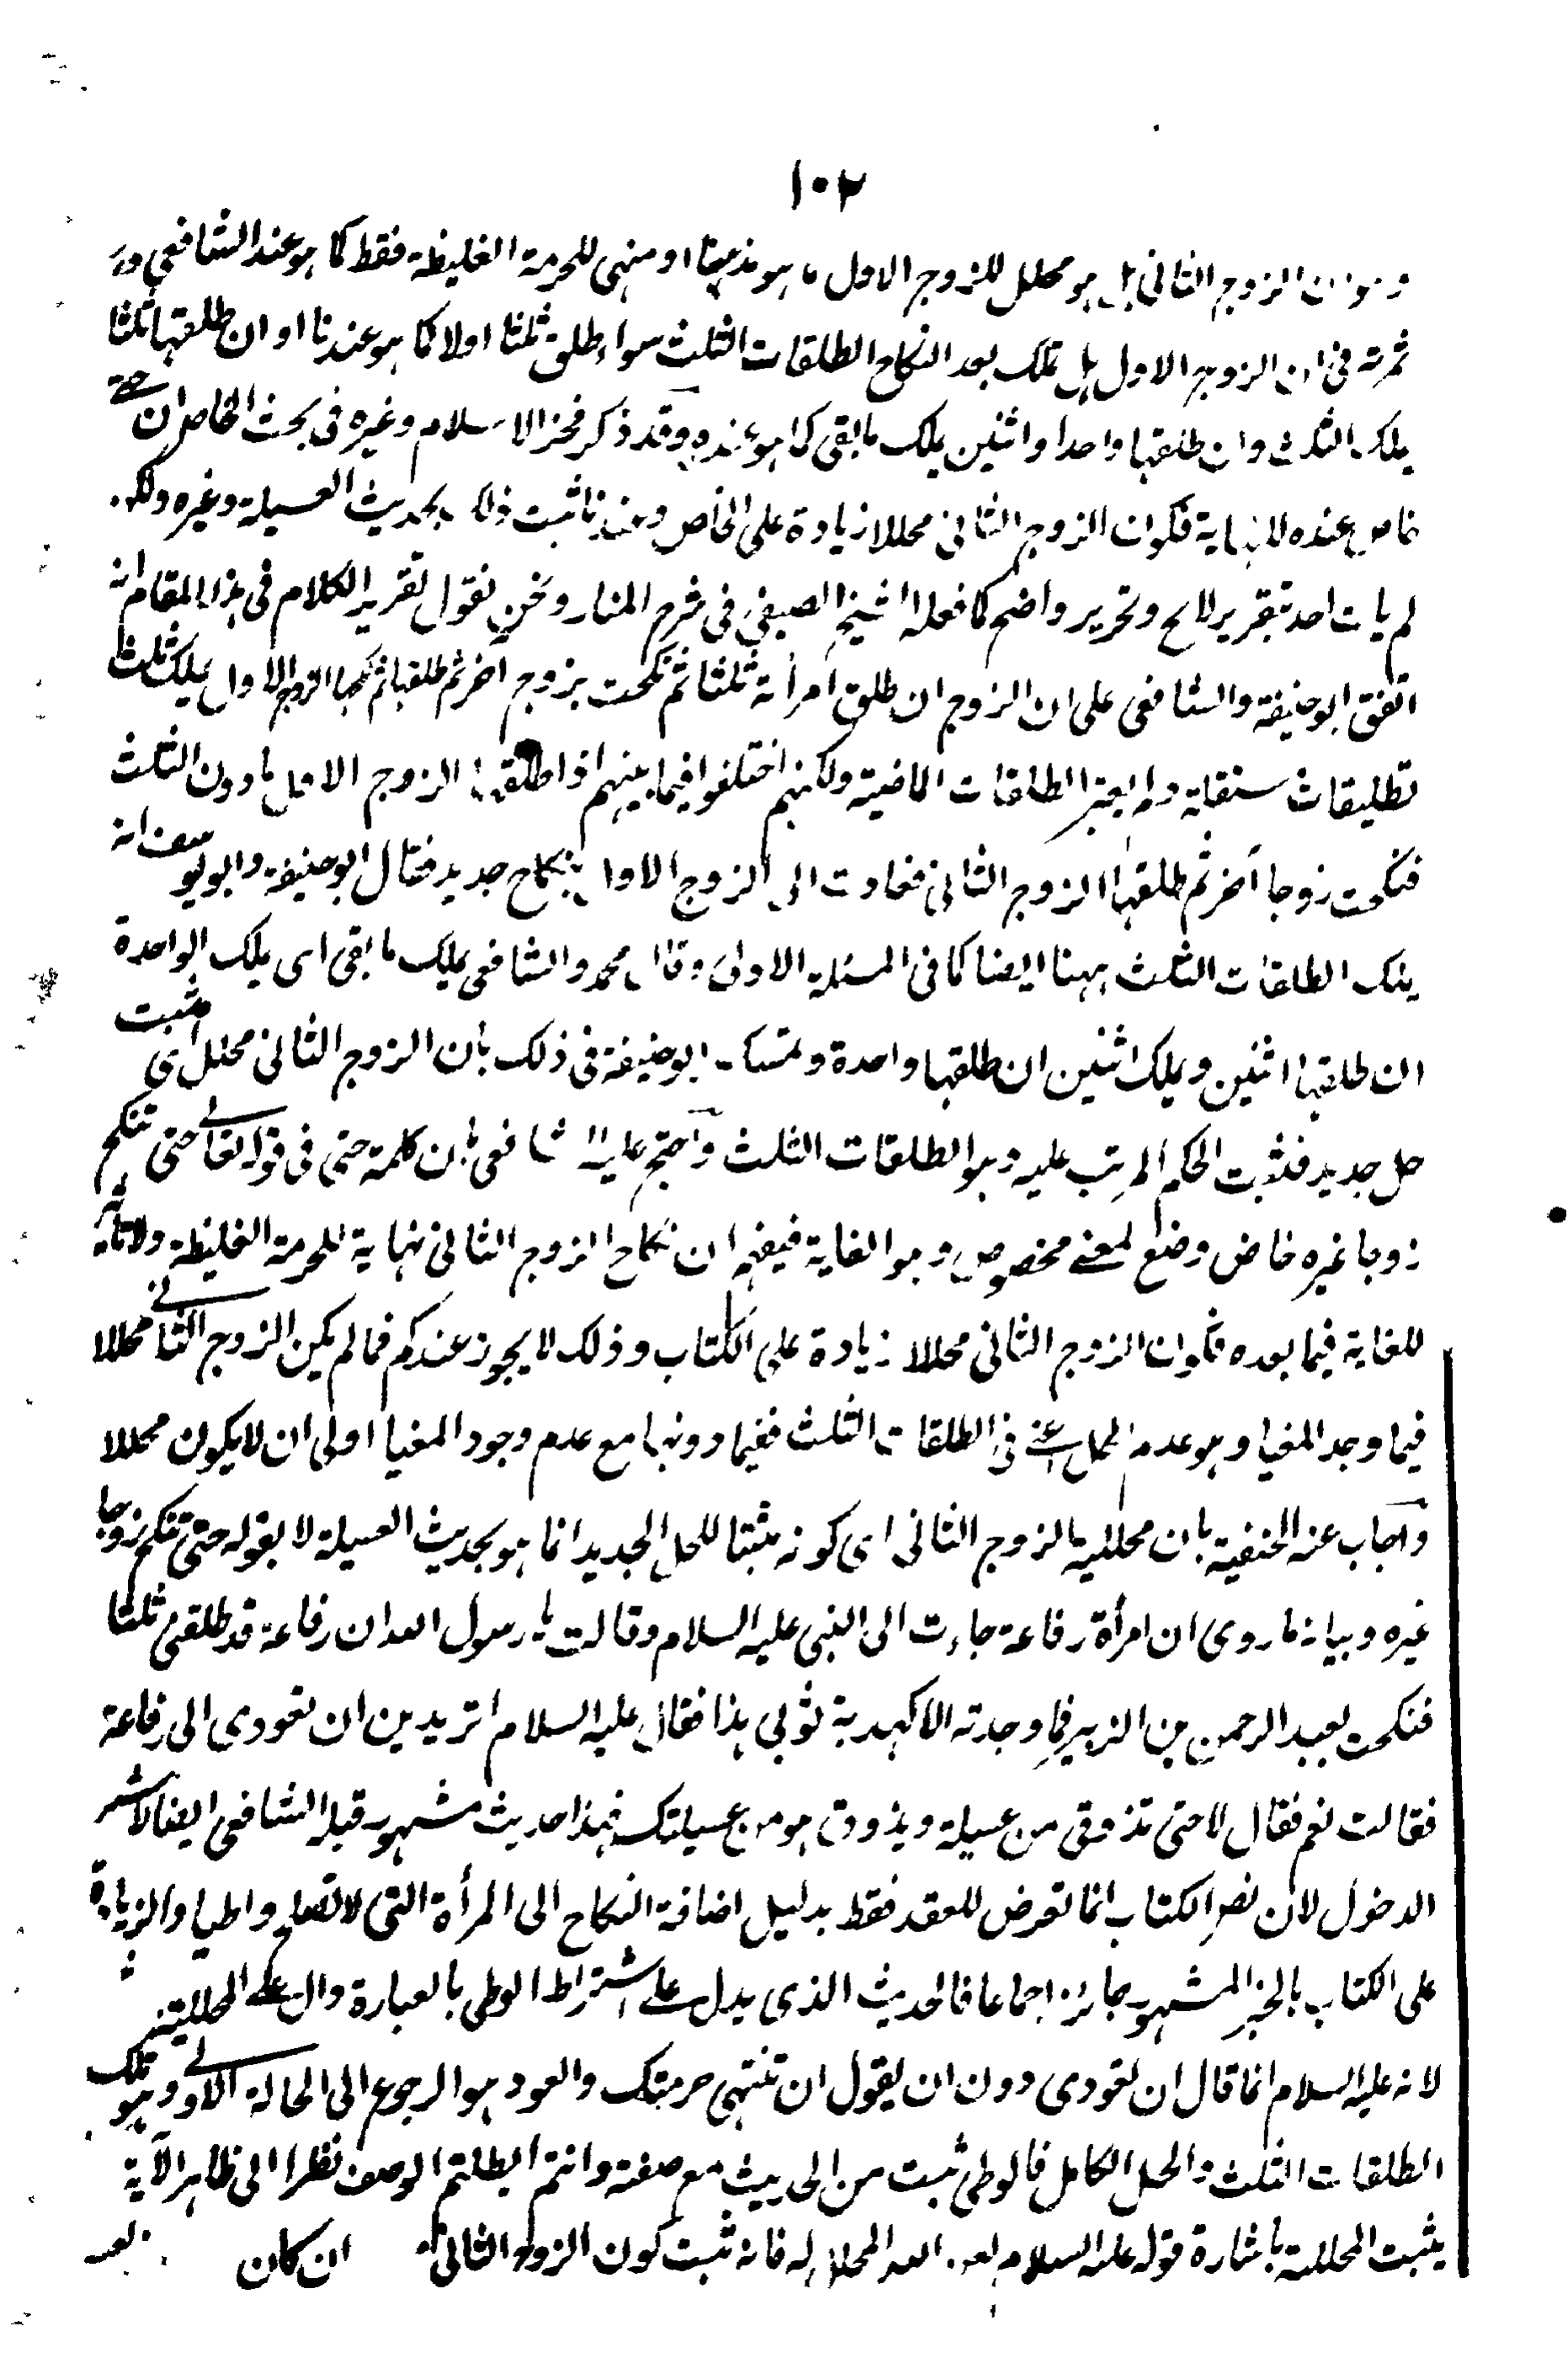 ١٠٢
وهو ان الزوج الثانى هل هو محلل للزوج الاول كما هو مذهبنا او منهى للحرمة الغليظة فقط كما هو عند الشافعى و
ثمرته فى ان الزوج الاول هل يملك بعد النكاح الطلقات الثلث سواء طلق ثلثا اولا كما هو عندنا او ان طلقها ثلثا
يملك الثلث وان طلقها واحدا واثنين يملك ما بقى كما هو عنده وقد ذكر فخر الاسلام وغيره فى بحث الخاص ان حتى
خاص عنده للنهاية فكون الزوج الثانى محللا زيادة على الخاص وعندنا ثبت ذلك بحديث العسيلة وغيره ولكن
لم يات احد بتقرير لائح وتحرير واضح كما فعله الشيخ فى شرح المنار ونحن نقول تقرير الكلام فى هذا المقام انه
اتفق ابوحنيفة والشافعى على ان الزوج ان طلق امرأته ثلثا ثم نكحت بزوج آخر ثم طلقها ثم نكحها الزوج الاول يملك ثلث
تطليقات مستقلة ولم يعتبر الطلقات الماضية ولكنهم اختلفوا فيما بينهم اذا طلقها الزوج الاول ما دون الثلث
فنكحت زوجا آخر ثم طلقها الزوج الثانى فعادت الى الزوج الاول بنكاح جديد فقال ابوحنيفة وابويوسف انه
يملك الطلقات الثلث ههنا ايضا كما فى المسئلة الاولى وقال محمد والشافعى يملك ما بقى اى يملك الواحدة
ان طلقها اثنين ويملك اثنين ان طلقها واحدة وتمسك ابوحنيفة فى ذلك بان الزوج الثانى محلل اى مثبت
حل جديد فيثبت الحكم المرتب عليه وهو الطلقات الثلث واحتج عليه الشافعى بان كلمة حتى فى قوله تعالى حتى تنكح
زوجا غيره خاص وضع لمعنى مخصوص وهو الغاية فيفهم ان نكاح الزوج الثانى نهاية للحرمة الغليظة ولا تاثير
للغاية فيما بعده فكون الزوج الثانى محللا زيادة على الكتاب وذلك لا يجوز عندكم فما لم يكن الزوج الثانى محللا
فيما وجد المغيا وهو عدم الحل اعنى فى الطلقات الثلث ففيما دونها مع عدم وجود المغيا اولى ان لا يكون محللا
واجاب عنه الحنفية بان محللية الزوج الثانى اى كونه مثبتا للحل الجديد انما هو بحديث العسيلة لا بقوله حتى تنكح زوجا
غيره وبيانه ما روى ان امرأة رفاعة جاءت الى النبى عليه السلام وقالت يا رسول الله ان رفاعة قد طلقنى ثلثا
فنكحت بعبد الرحمن بن الزبير فما وجدته الا كهدبة ثوبى هذا فقال عليه السلام اتريدين ان تعودى الى رفاعة
فقالت نعم فقال لا حتى تذوقى من عسيلته ويذوق هو من عسيلتك فهذا حديث مشهور قبله الشافعى ايضا لاشتراط
الدخول لان نص الكتاب انما تعرض للعقد فقط بدليل اضافة النكاح الى المرأة التى لا تصلح واطيا والزيادة
على الكتاب بالخبر المشهور جائزة اجماعا فالحديث الذى يدل على اشتراط الوطى بالعبارة دال على المحللية
لانه عليه السلام انما قال ان تعودى دون ان يقول ان تنتهى حرمتك والعود هو الرجوع الى الحالة الاولى وهو تلك
الطلقات الثلث والحل الكامل فالوطى ثبت من الحديث مع صفته وانتم ابطلتم الوصف نظرا الى ظاهر الآية
يثبت المحللية باشارة قوله عليه السلام لعن الله المحلل له فانه ثبت كون الزوج الثانى ان كان بعد